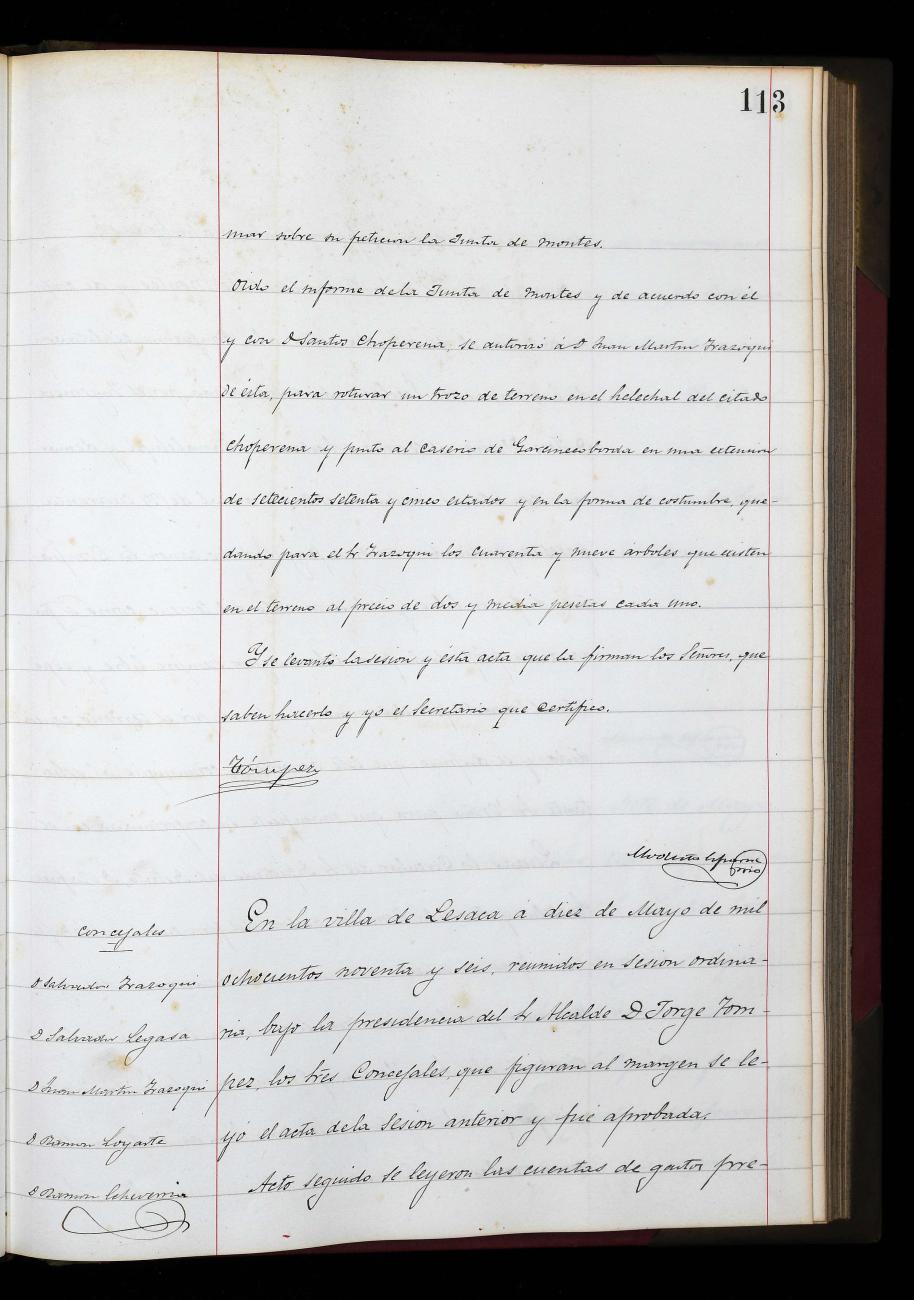 113
mar sobre su peticion la Junta de montes.
Oido el informe de la Junta de Montes y de acuerdo con él
y con D Santos Choperena, se autorizó á D Juan Martin Irazoqui
de ésta, para roturar un trozo de terreno en el helechal del citado
Choperena y junto al caserio de en una estension
de setecientos setenta y cinco estados y en la forma de costumbre, que-
dando para el Sr Irazoqui los cuarenta y nueve árboles que existen
en el terreno al precio de dos y media pesetas cada uno.
Y se levantó la sesion y ésta acta que la firman los Señores, que
saben hacerlo y yo el Secretario que certifico.
Tómpez
Modesto
Concejales
D Salvador Irazoqui
D Salvador Legasa
D Juan Martin Irazoqui
D Ramon Loyarte
D Ramon Echeverria
En la villa de Lesaca a diez de Mayo de mil
ochocientos noventa y seis, reunidos en sesion ordina-
ria, bajo la presidencia del Sr Alcalde D Jorge Tom-
pez, los Sres Concejales, que figuran al margen se le-
yó el acta de la sesion anterior y fué aprobada.
Acto seguido se leyeron las cuentas de gastos pre-